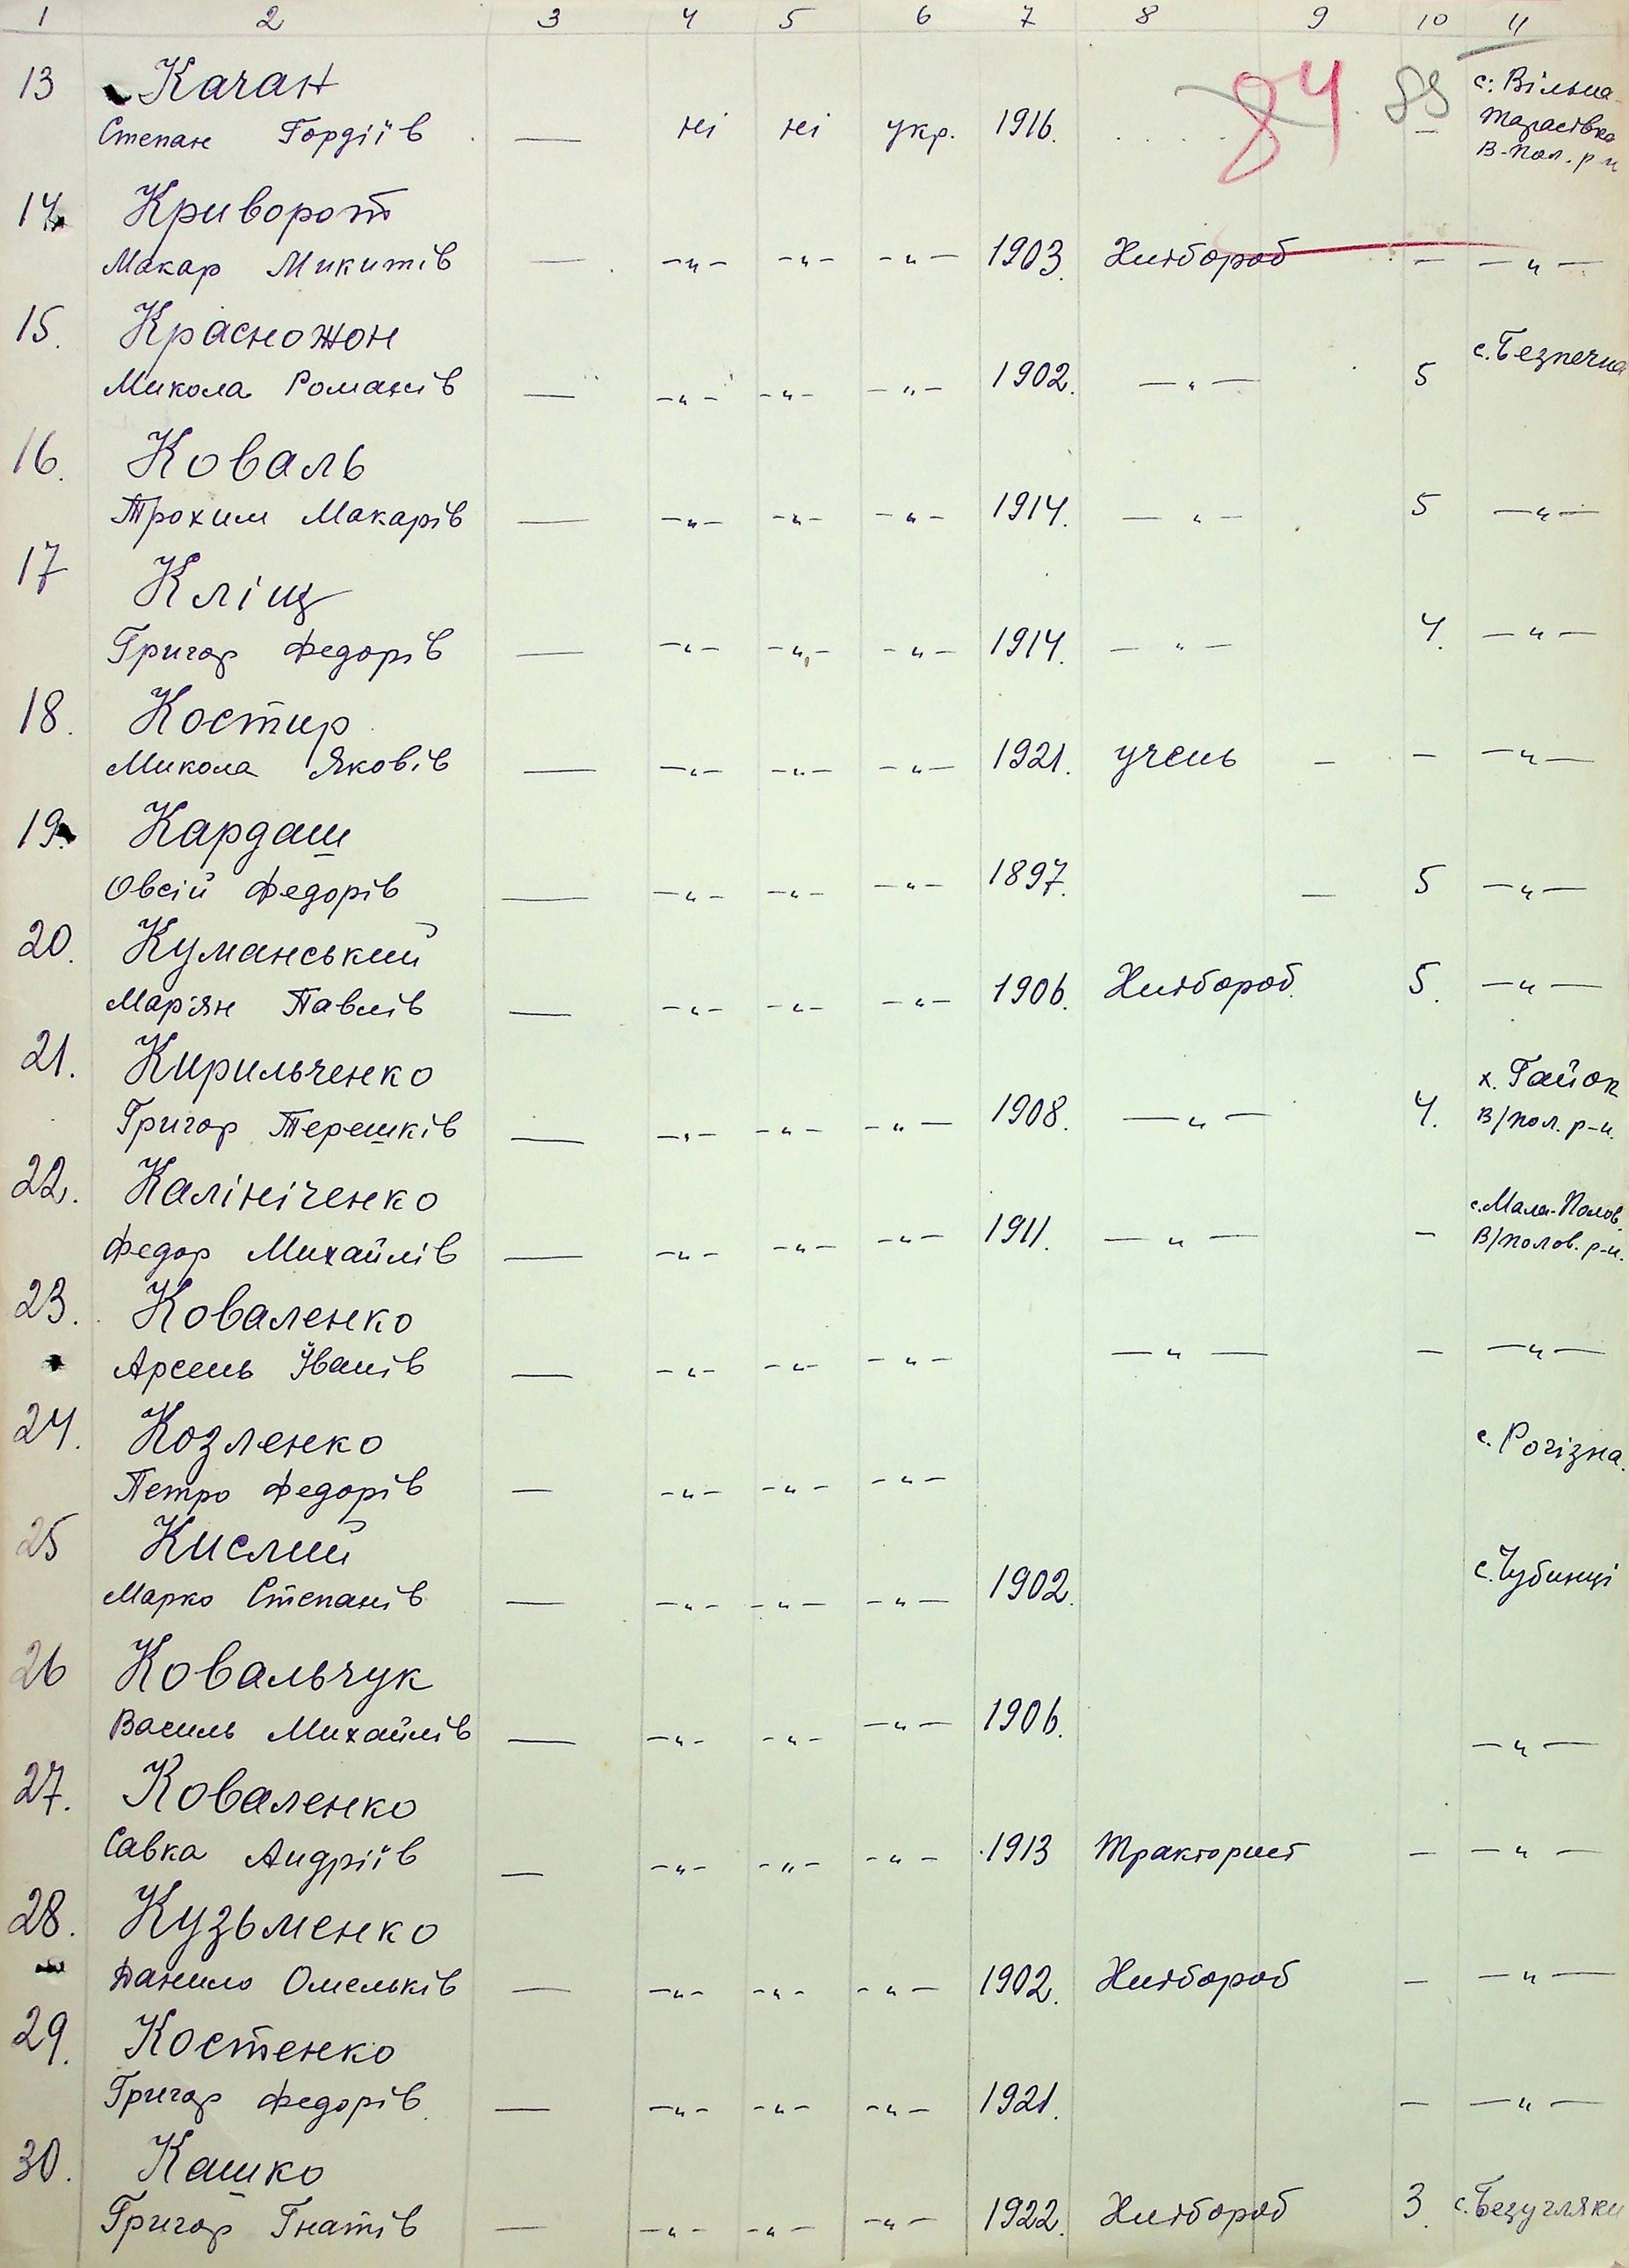 1 2 3 4 5 6 7 8 9 10 11
84 88
13 Качан с. Вільна
Степан Гордіїв — ні ні укр. 1916. . . . . – Тарасівка
В-Пол. р-н
14. Криворот
Макар Микитів — –„– –„– –„– 1903. Хлібороб – –„–
15. Красножон с. Безпечна
Микола Романів — –„– –„– –„– 1902. –„– 5
16. Коваль
Трохим Макарів — –„– –„– –„– 1914. –„– 5 –„–
17 Кліщ
Григор Федорів — –„– –„– –„– 1914. –„– 4. –„–
18. Костир
Микола Яковів — –„– –„– –„– 1921. учень – – –„–
19. Кардаш
Овсій Федорів — –„– –„– –„– 1897. – 5 –„–
20. Куманський
Мар'ян Павлів — –„– –„– –„– 1906. Хлібороб. 5. –„–
21. Кирильченко х. Гайок
Григор Терешків — –„– –„– –„– 1908. –„– 4. В/пол. р-н.
22. Калініченко с. Мала-Полов.
Федор Михайлів — –„– –„– –„– 1911. –„– – В/полов. р-н.
23. Коваленко
Арсень Іванів — –„– –„– –„– –„– – –„–
24. Козленко с. Рогізна.
Петро Федорів — –„– –„– –„–
25 Кислий с. Чубинці
Марко Степанів — –„– –„– –„– 1902.
26 Ковальчук
Василь Михайлів — –„– –„– –„– 1906. –„–
27. Коваленко
Савка Андріїв — –„– –„– –„– 1913 Тракторист – –„–
28. Кузьменко
Данило Омельків — –„– –„– –„– 1902. Хлібороб – –„–
29. Костенко
Григор Федорів — –„– –„– –„– 1921. – –„–
30. Кашко
Григор Гнатів — –„– –„– –„– 1922. Хлібороб 3. с. Безугляки